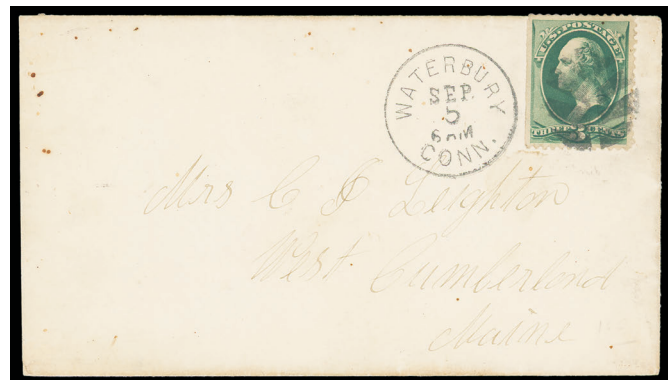 U.S. POSTAGE
THREE 3 CENTS
WATERBURY
SEP
5
CONN.
Mrs C Leighton
West Cumberland
Maine